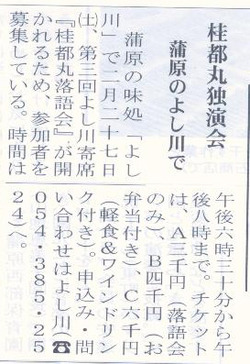 桂都丸独演会
蒲原のよし川で
蒲原の味処「よし
川」で二月二十七日
㈯、第三回よし川寄席
『桂都丸落語会』が開
かれるため、参加者を
募集している。時間は
午後六時三十分から午
後八時まで。チケット
は、A三千円（落語会
のみ）、B四千円（お
弁当付き）C六千円
（軽食&ワインドリン
ク付き）。申込み・問
い合わせはよし川☎
054・385・25
24）へ。